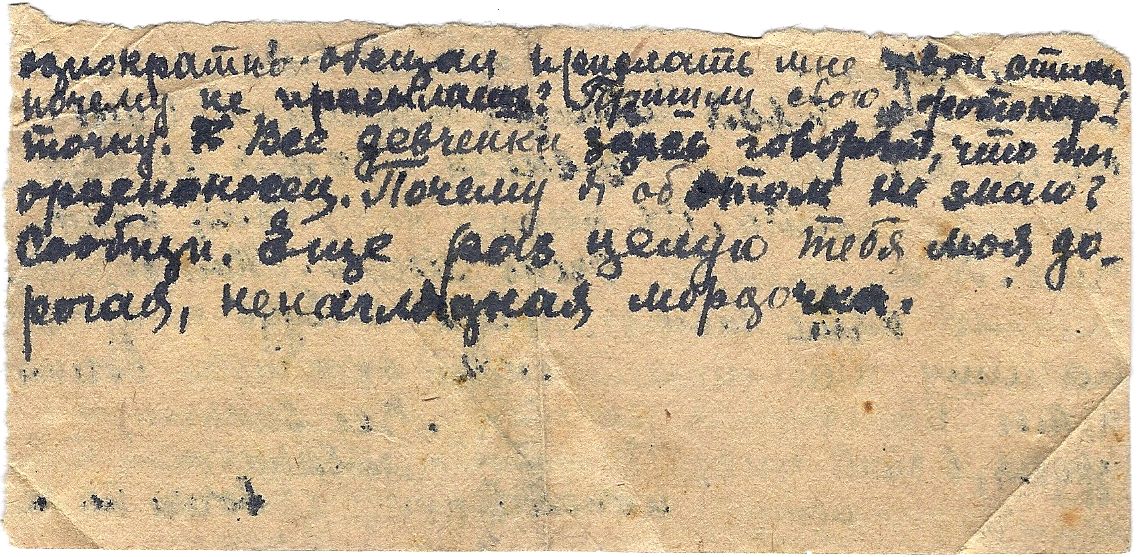 однократно обещал прислать мне твои стихи,
почему не присылаешь? Пришли свою фотокар-
точку. Все девченки здесь говорят, что ты
орденоносец. Почему я об этом не знаю?
Сообщи. Еще раз целую тебя моя до-
рогая, ненаглядная мордочка.